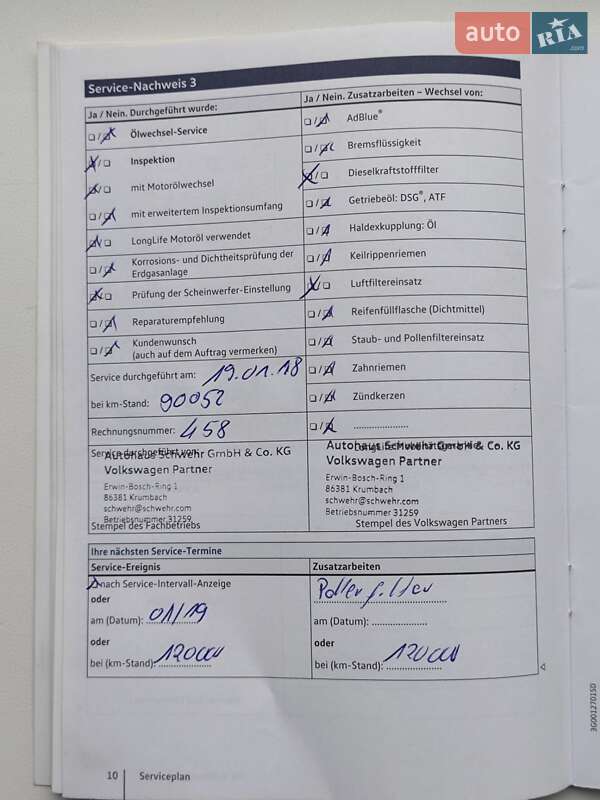 auto RIA .com
Service-Nachweis 3
Ja / Nein. Durchgeführt wurde:
Ölwechsel-Service
Inspektion
mit Motorölwechsel
mit erweitertem Inspektionsumfang
LongLife Motoröl verwendet
Korrosions- und Dichtheitsprüfung der
Erdgasanlage
Prüfung der Scheinwerfer-Einstellung
Reparaturempfehlung
Kundenwunsch
(auch auf dem Auftrag vermerken)
Service durchgeführt am: 19.01.18
bei km-Stand: 90052
Rechnungsnummer: 458
Service durchgeführt von:
Autohaus Schwehr GmbH & Co. KG
Volkswagen Partner
Erwin-Bosch-Ring 1
86381 Krumbach
schwehr@schwehr.com
Betriebsnummer 31259
Stempel des Fachbetriebs
Ja / Nein. Zusatzarbeiten – Wechsel von:
AdBlue®
Bremsflüssigkeit
Dieselkraftstofffilter
Getriebeöl: DSG®, ATF
Haldexkupplung: Öl
Keilrippenriemen
Luftfiltereinsatz
Reifenfüllflasche (Dichtmittel)
Staub- und Pollenfiltereinsatz
Zahnriemen
Zündkerzen
......................
Autohaus Schwehr GmbH & Co. KG
Volkswagen Partner
Erwin-Bosch-Ring 1
86381 Krumbach
schwehr@schwehr.com
Betriebsnummer 31259
Stempel des Volkswagen Partners
Ihre nächsten Service-Termine
Service-Ereignis
nach Service-Intervall-Anzeige
oder
am (Datum): 01/19
oder
bei (km-Stand): 120000
Zusatzarbeiten
Pollenfilter
am (Datum): ......................
oder
bei (km-Stand): 120000
3G0012701SD
10 Serviceplan